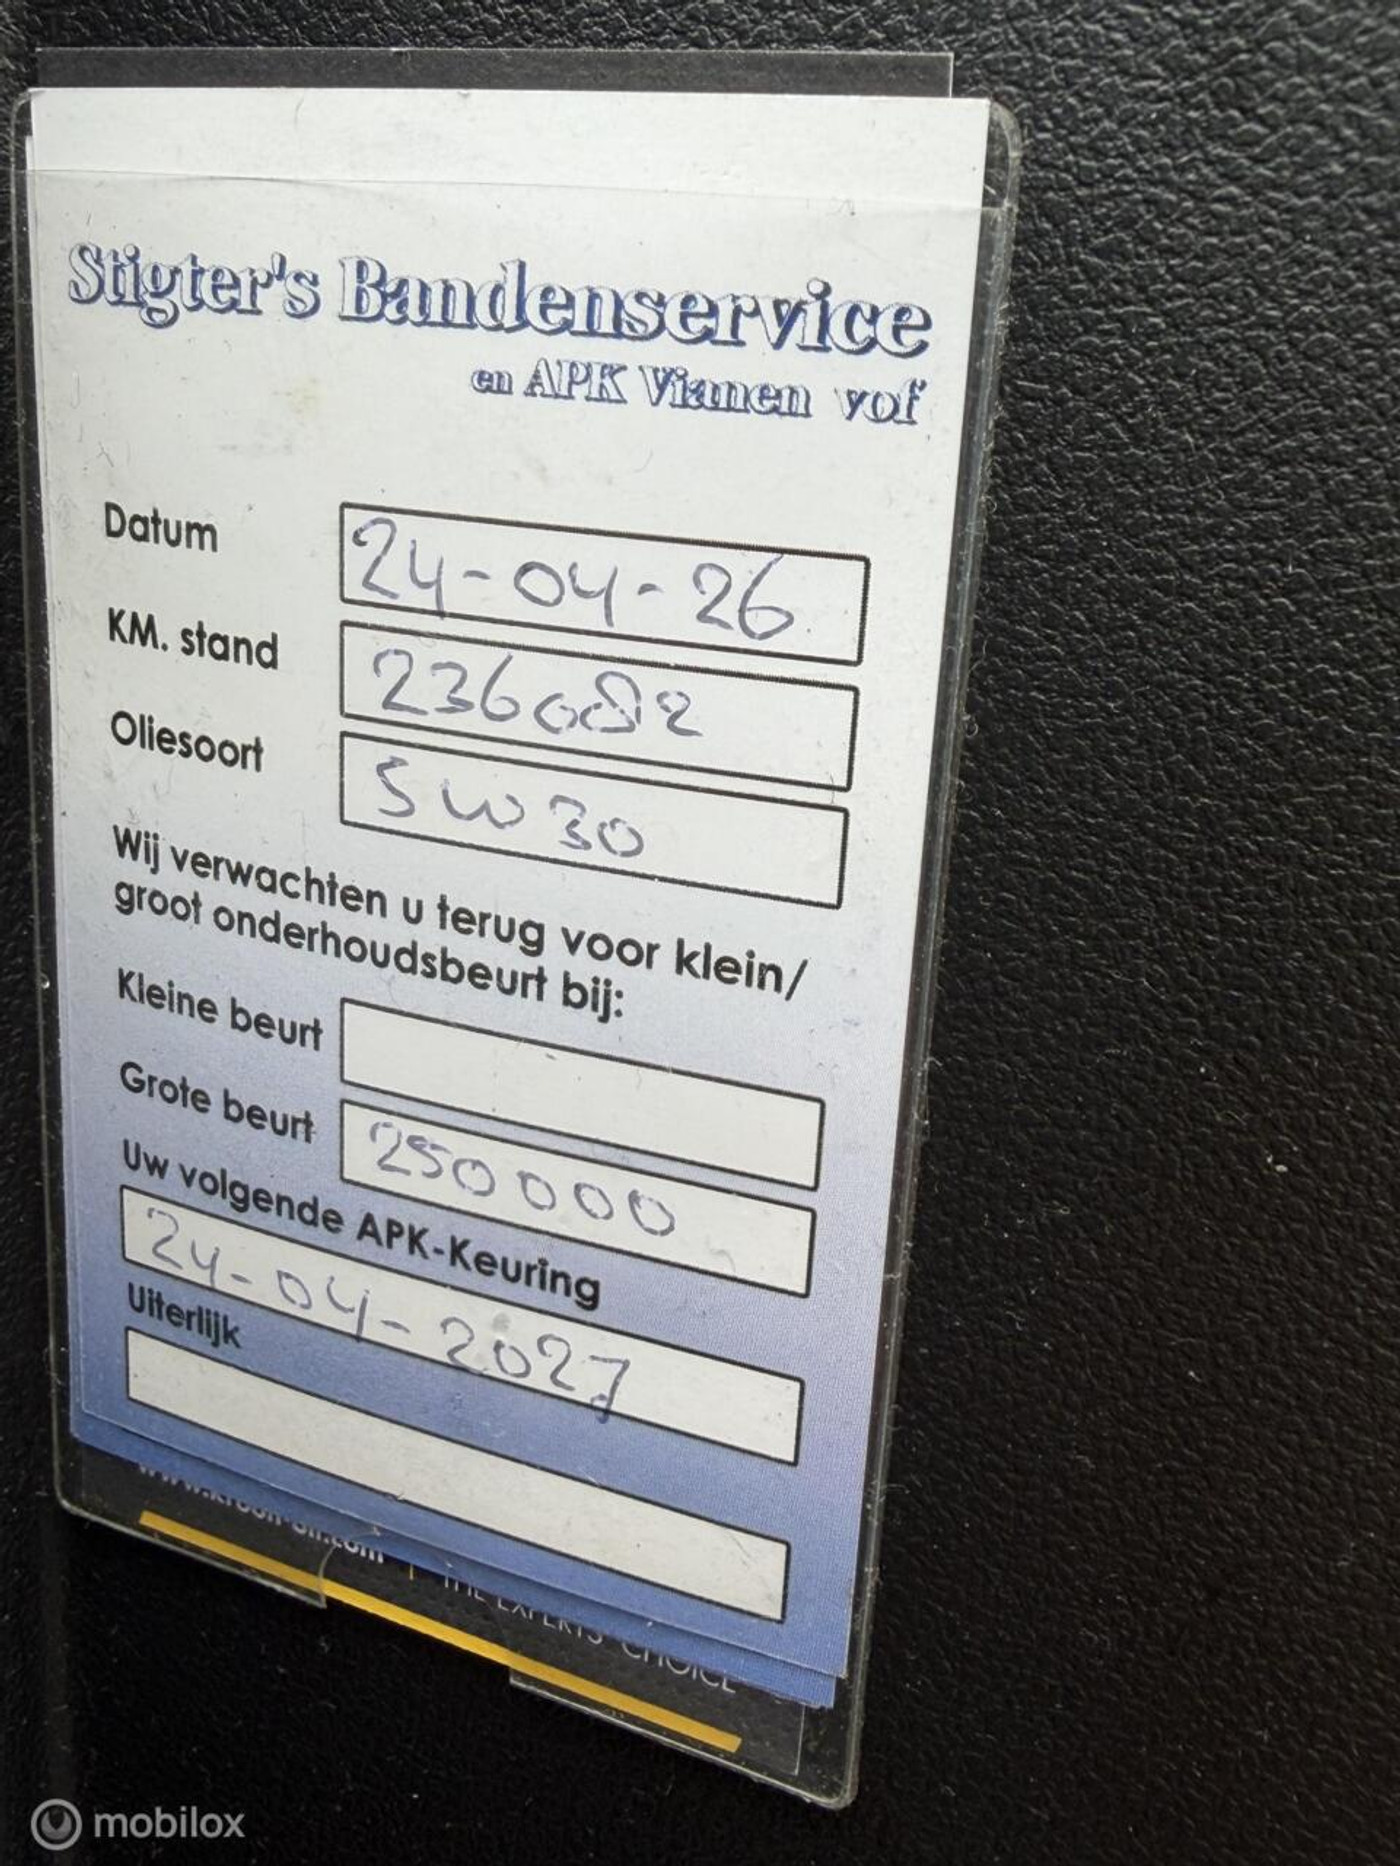 Stigter's Bandenservice
en APK Vianen vof
Datum 24-04-26
KM. stand 236082
Oliesoort 5W30
Wij verwachten u terug voor klein/
groot onderhoudsbeurt bij:
Kleine beurt
Grote beurt 250000
Uw volgende APK-Keuring
24-04-2027
Uiterlijk
www.kroon-oil.com | THE EXPERTS' CHOICE
mobilox